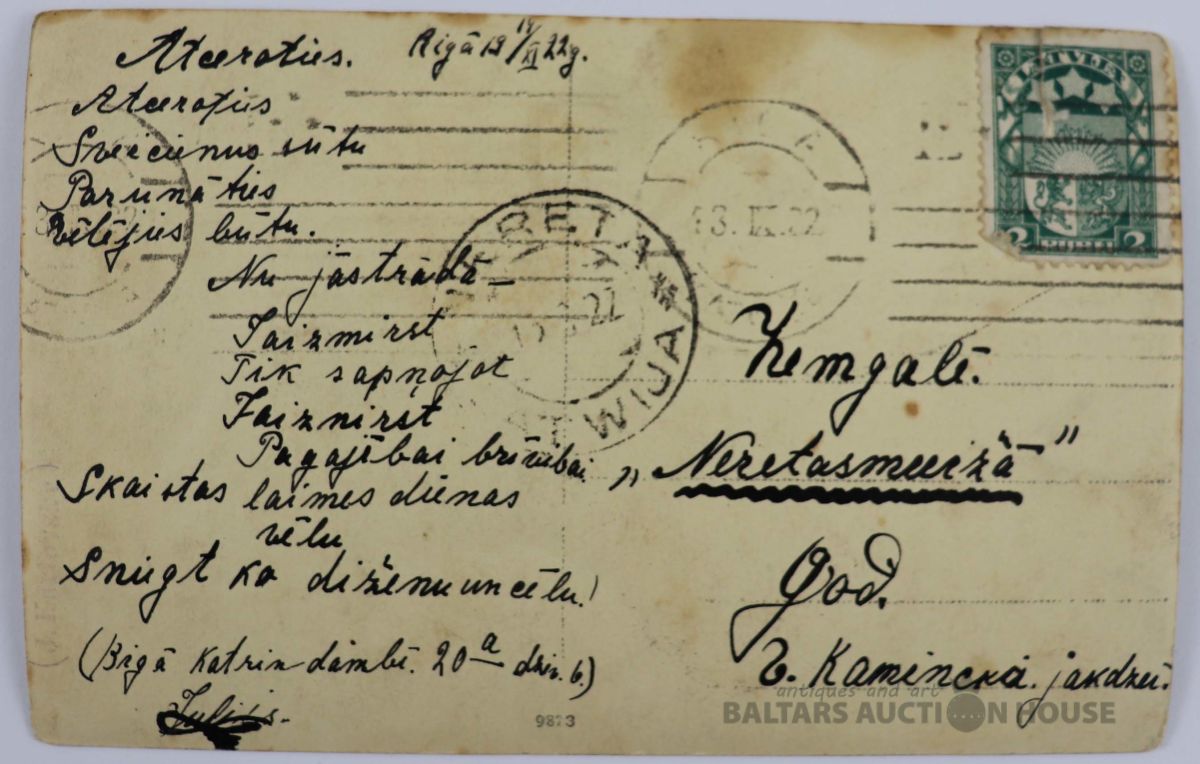 Atceroties. Rigā 19 18/XI 22g.
Atceroties
Sveicienus sūtu
Parunāties
Vēlējies būtu.
Nu jāstrādā –
Jaizmirst
Tik sapņojot
Jaizmirst
Pagajībai brīvībai
Skaistas laimes dienas
vēlu
Sniegt ko diženu un cēlu!
(Rigā Katrin dambī. 20 a dziv. 6.)
Julijs.
9873
LATVIJA
2 RUBLI 2
RIGA
13. IX. 22
NERETA
LATWIJA
Zemgalē.
„Neretasmuižā"
God.
Kaminska.
antiques and art
BALTARS AUCTION HOUSE